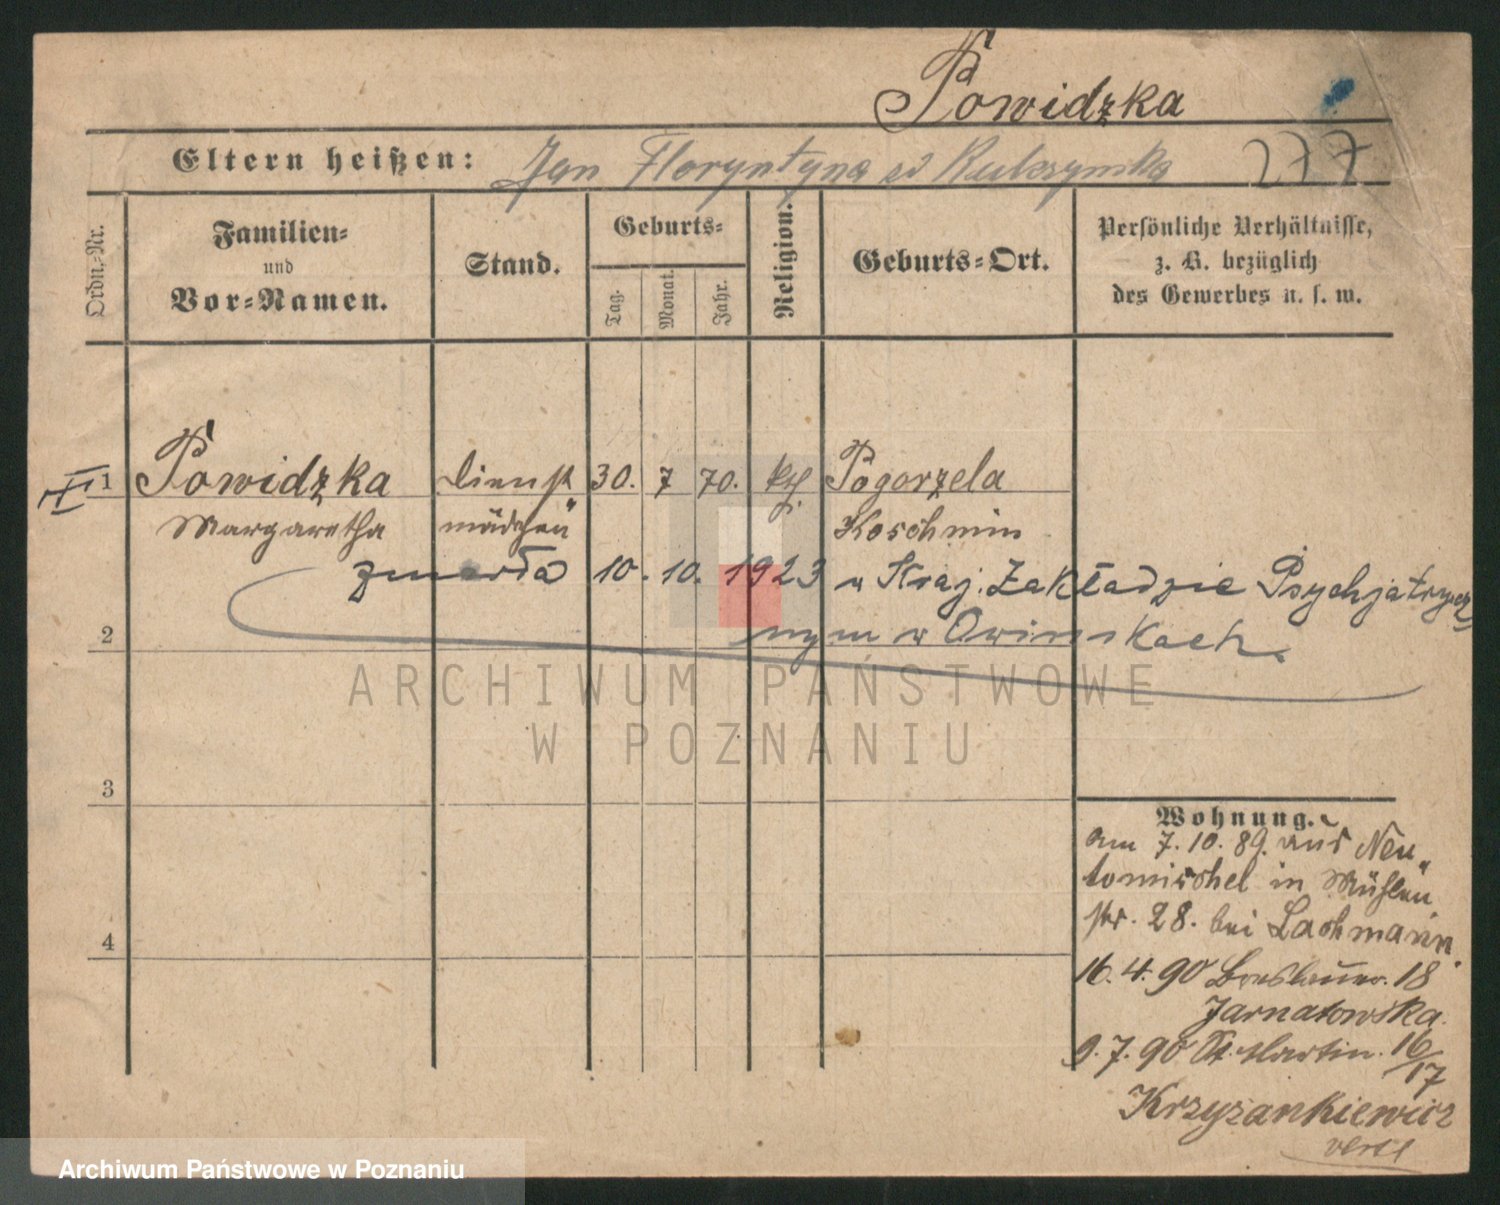 Powidzka
Eltern heißen: Jan Floryntyna 277
Ordn.-Nr.
Familien-
und
Vor-Namen.
Stand.
Geburts-
Tag.
Monat.
Jahr.
Religion.
Geburts-Ort.
Persönliche Verhältnisse,
z. B. bezüglich
des Gewerbes u. s. w.
1 Powidzka Dienst 30. 7 70. kth. Pogorzela
Margaretha mädchen Koschmin
zmarła 10. 10. 1923 w Kraj. Zakładzie Psychjatrycz
nym w Owinskach.
2
3
4
ARCHIWUM PAŃSTWOWE
W POZNANIU
Wohnung.
am 7. 10. 89. aus Neu
tomischel in Mühlen
str. 28. bei Lachmann.
16. 4. 90 Breslauer. 18
Jarnatowska.
9. 7. 90 St. Martin. 16/17
Krzyzankiewicz
verte
Archiwum Państwowe w Poznaniu